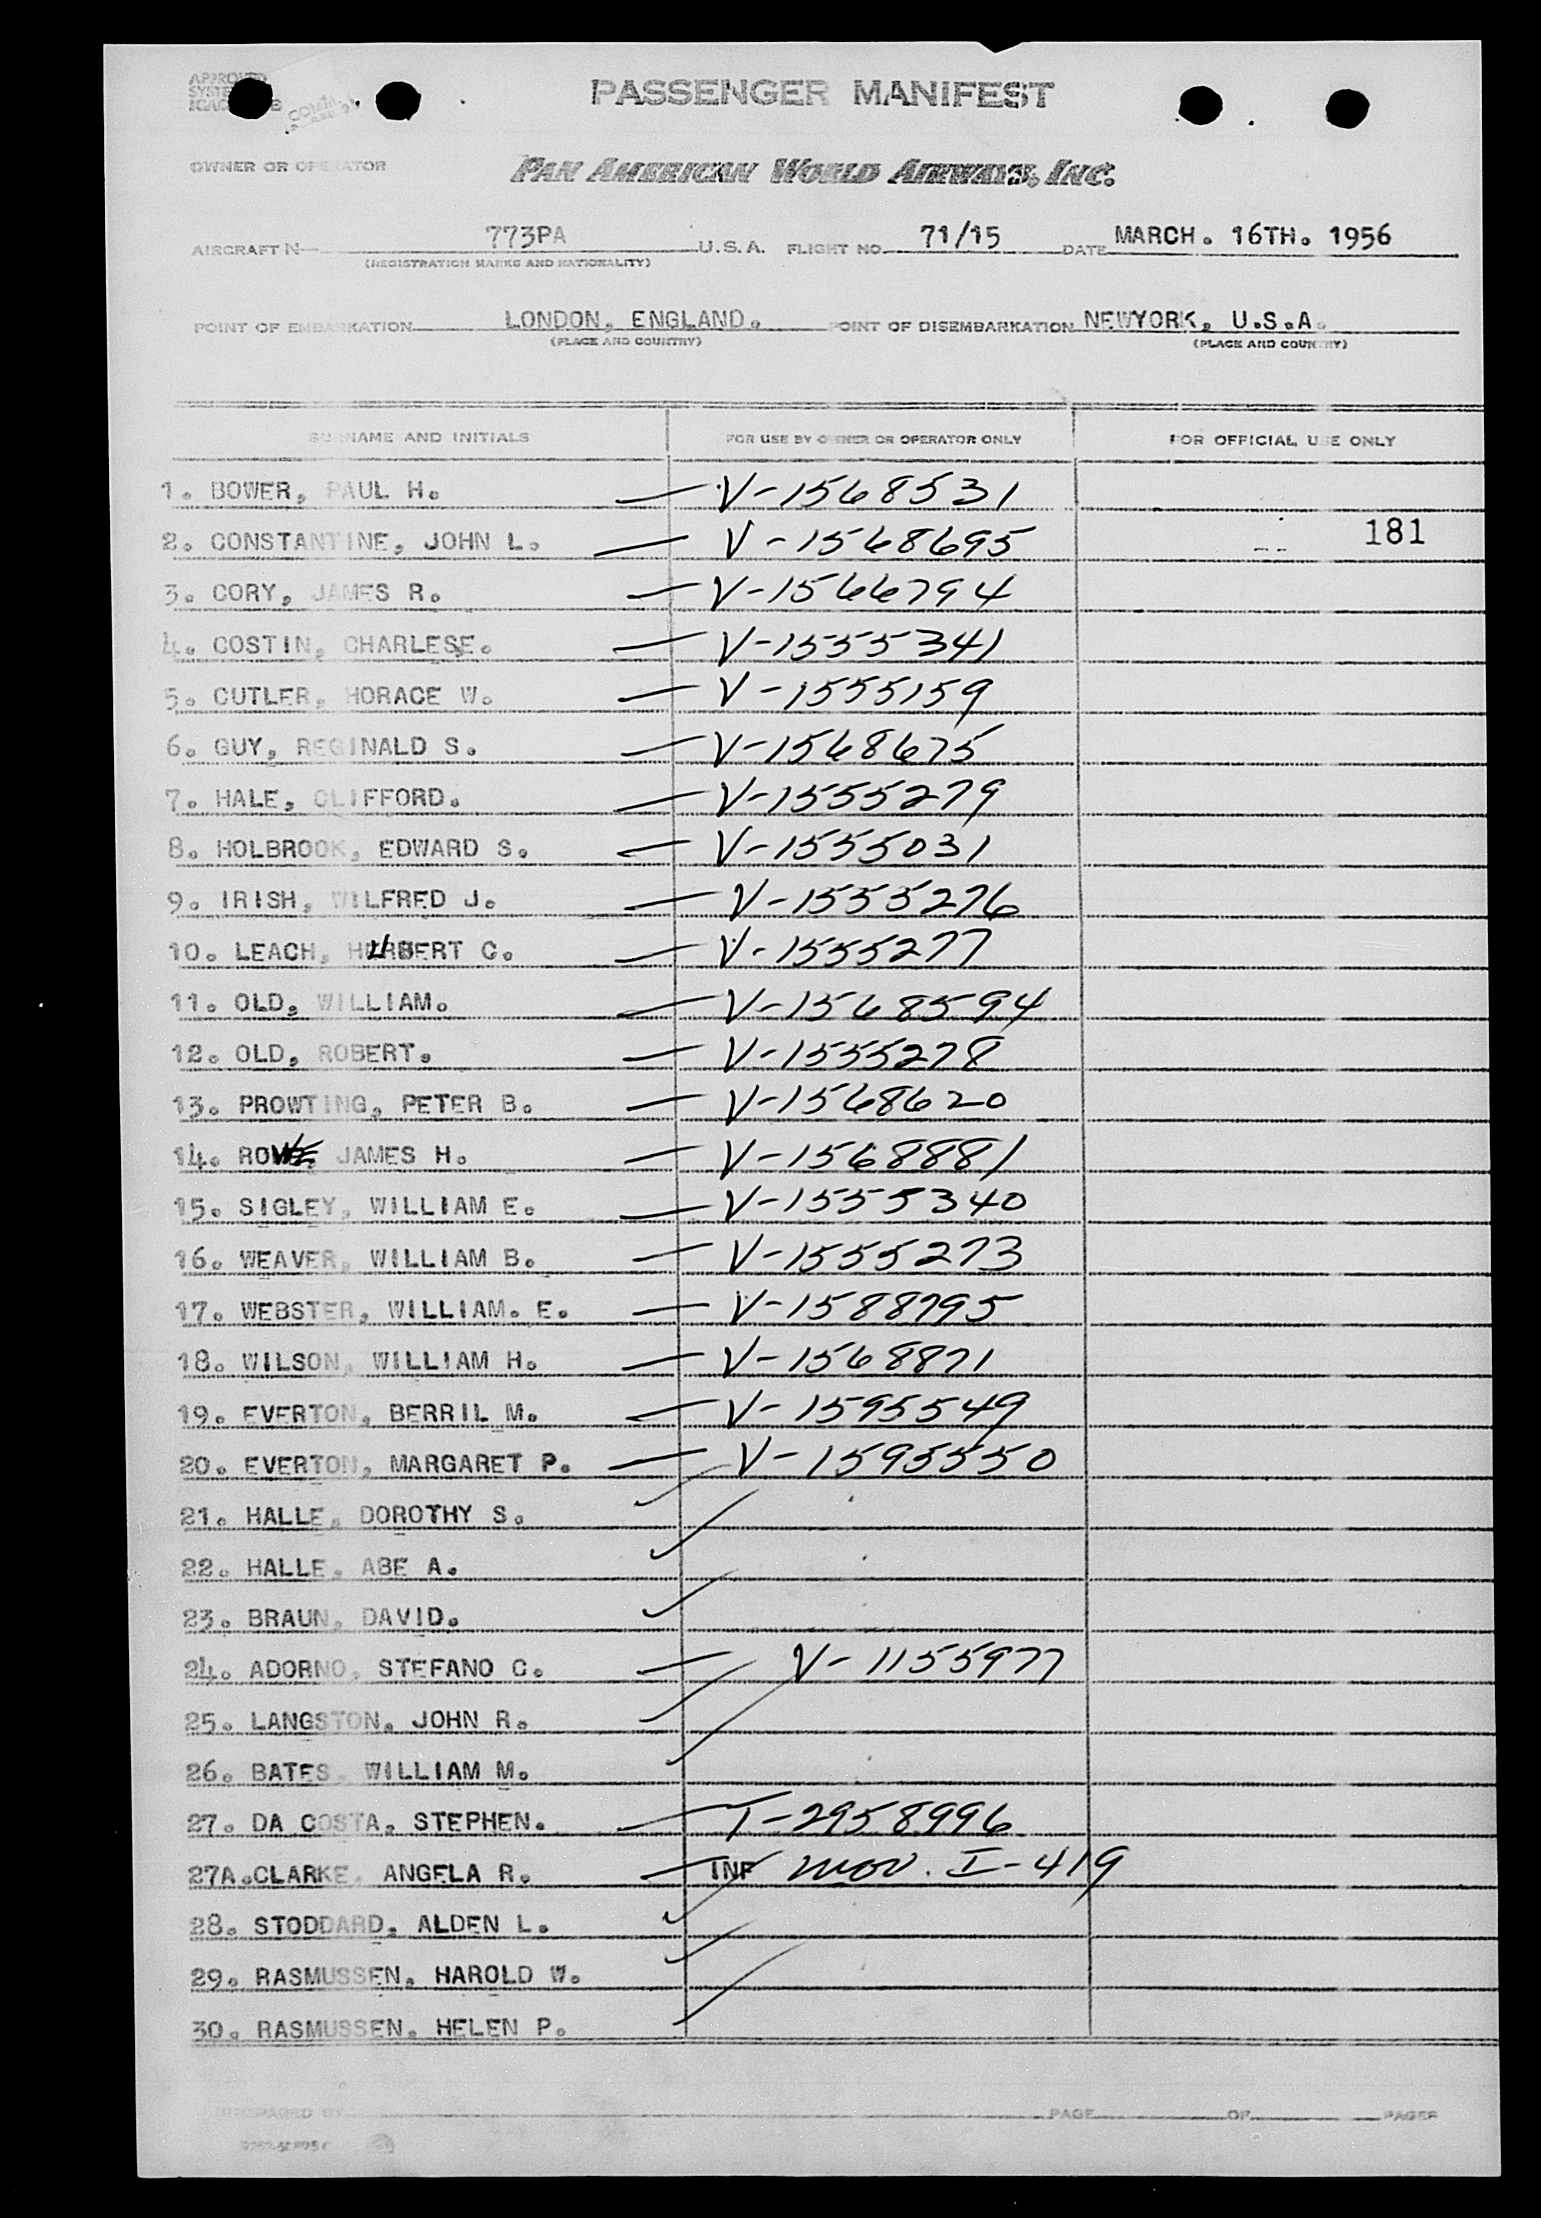 PASSENGER MANIFEST
OWNER OR OPERATOR PAN AMERICAN WORLD AIRWAYS, INC.
AIRCRAFT N 773PA U.S.A. FLIGHT NO. 71/15 DATE MARCH. 16TH. 1956
(REGISTRATION MARKS AND NATIONALITY)
POINT OF EMBARKATION LONDON, ENGLAND. POINT OF DISEMBARKATION NEWYORK, U.S.A.
(PLACE AND COUNTRY) (PLACE AND COUNTRY)
SURNAME AND INITIALS FOR USE BY OWNER OR OPERATOR ONLY FOR OFFICIAL USE ONLY
1. BOWER, PAUL H. — V-1568531
2. CONSTANTINE, JOHN L. — V-1568695 181
3. CORY, JAMES R. — V-1566794
4. COSTIN, CHARLES E. — V-1555341
5. CUTLER, HORACE W. — V-1555159
6. GUY, REGINALD S. — V-1568675
7. HALE, CLIFFORD. — V-1555279
8. HOLBROOK, EDWARD S. — V-1555031
9. IRISH, WILFRED J. — V-1555276
10. LEACH, HUBERT C. — V-1555277
11. OLD, WILLIAM. — V-1568594
12. OLD, ROBERT. — V-1555278
13. PROWTING, PETER B. — V-1568620
14. ROWE, JAMES H. — V-1568881
15. SIGLEY, WILLIAM E. — V-1555340
16. WEAVER, WILLIAM B. — V-1555273
17. WEBSTER, WILLIAM. E. — V-1588795
18. WILSON, WILLIAM H. — V-1568871
19. EVERTON, BERRIL M. — V-1595549
20. EVERTON, MARGARET P. — V-1595550
21. HALLE, DOROTHY S.
22. HALLE, ABE A.
23. BRAUN, DAVID.
24. ADORNO, STEFANO C. — V-1155977
25. LANGSTON, JOHN R.
26. BATES, WILLIAM M.
27. DA COSTA, STEPHEN. — T-2958996
27A. CLARKE, ANGELA R. — INF mov. I-419
28. STODDARD, ALDEN L.
29. RASMUSSEN, HAROLD W.
30. RASMUSSEN, HELEN P.
PREPARED BY PAGE OF PAGES